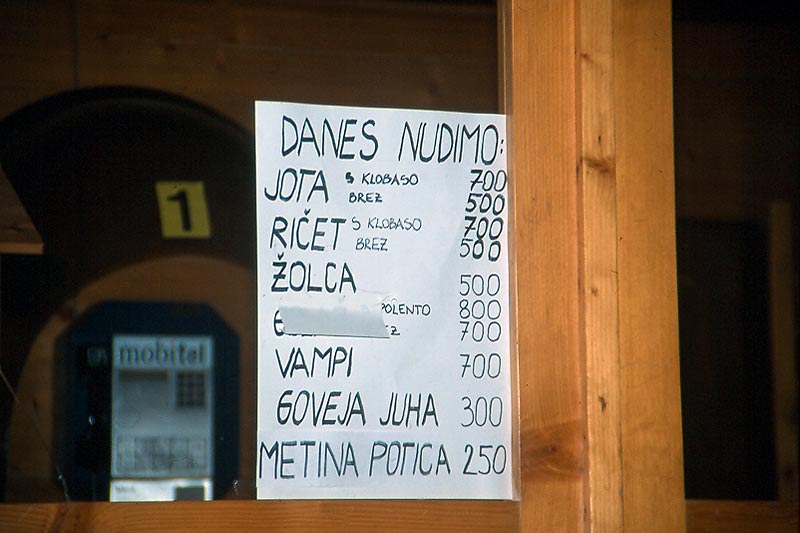 DANES NUDIMO:
JOTA S KLOBASO 700
BREZ 500
RIČET S KLOBASO 700
BREZ 500
ŽOLCA 500
POLENTO 800
700
VAMPI 700
GOVEJA JUHA 300
METINA POTICA 250
1
mobitel